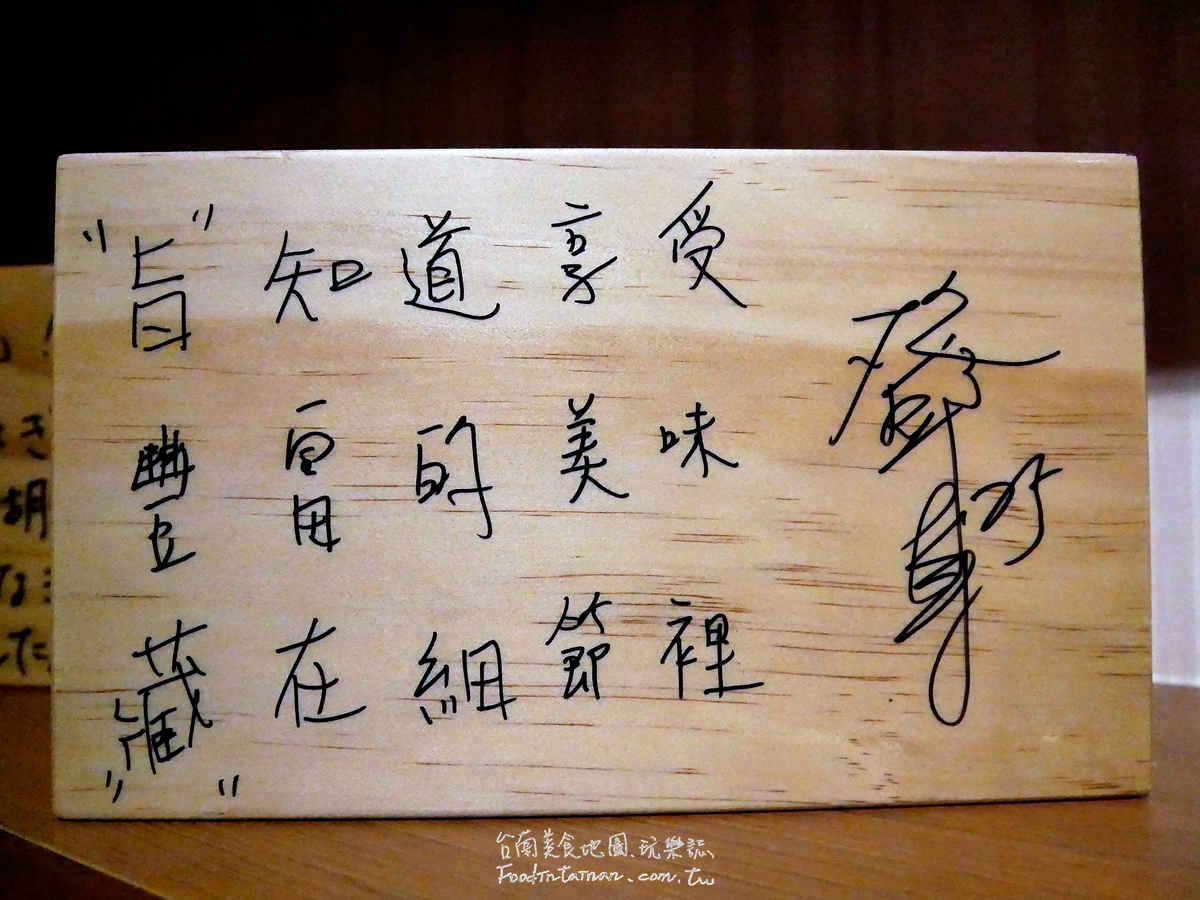 "旨"知道享受
豐富的美味
"藏"在細節裡
胡
台南美食地圖、玩樂誌、
Foodintainan.com.tw